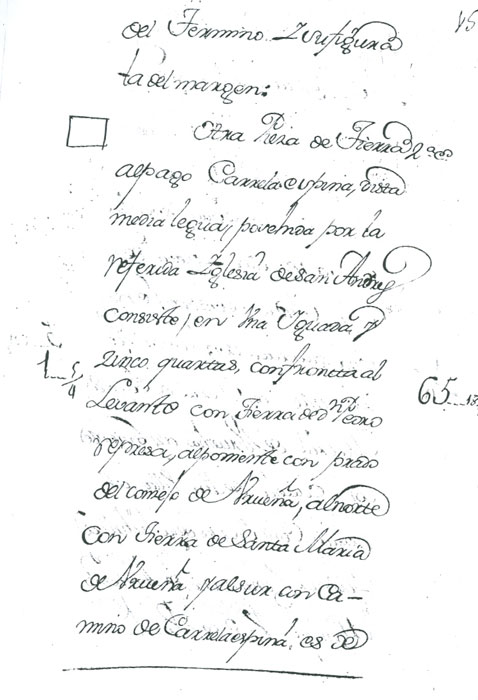 45
del Termino Zsufigura
la del margen:
Otra Pieza de Tierra 2ª
al pago Carrelaespina, dista
media legua, posehida por la
referida Yglesia de San Andres
consiste, en Una Yguada, y
zinco quartas, confronta al
1 5/4
65
Levante con Tierra de dn Pedro
represa, al poniente con prado
del consejo de Arueña, al norte
con Tierra de Santa Maria
de Arueña, y al sur con Ca-
mino de Carrelaespina, es de